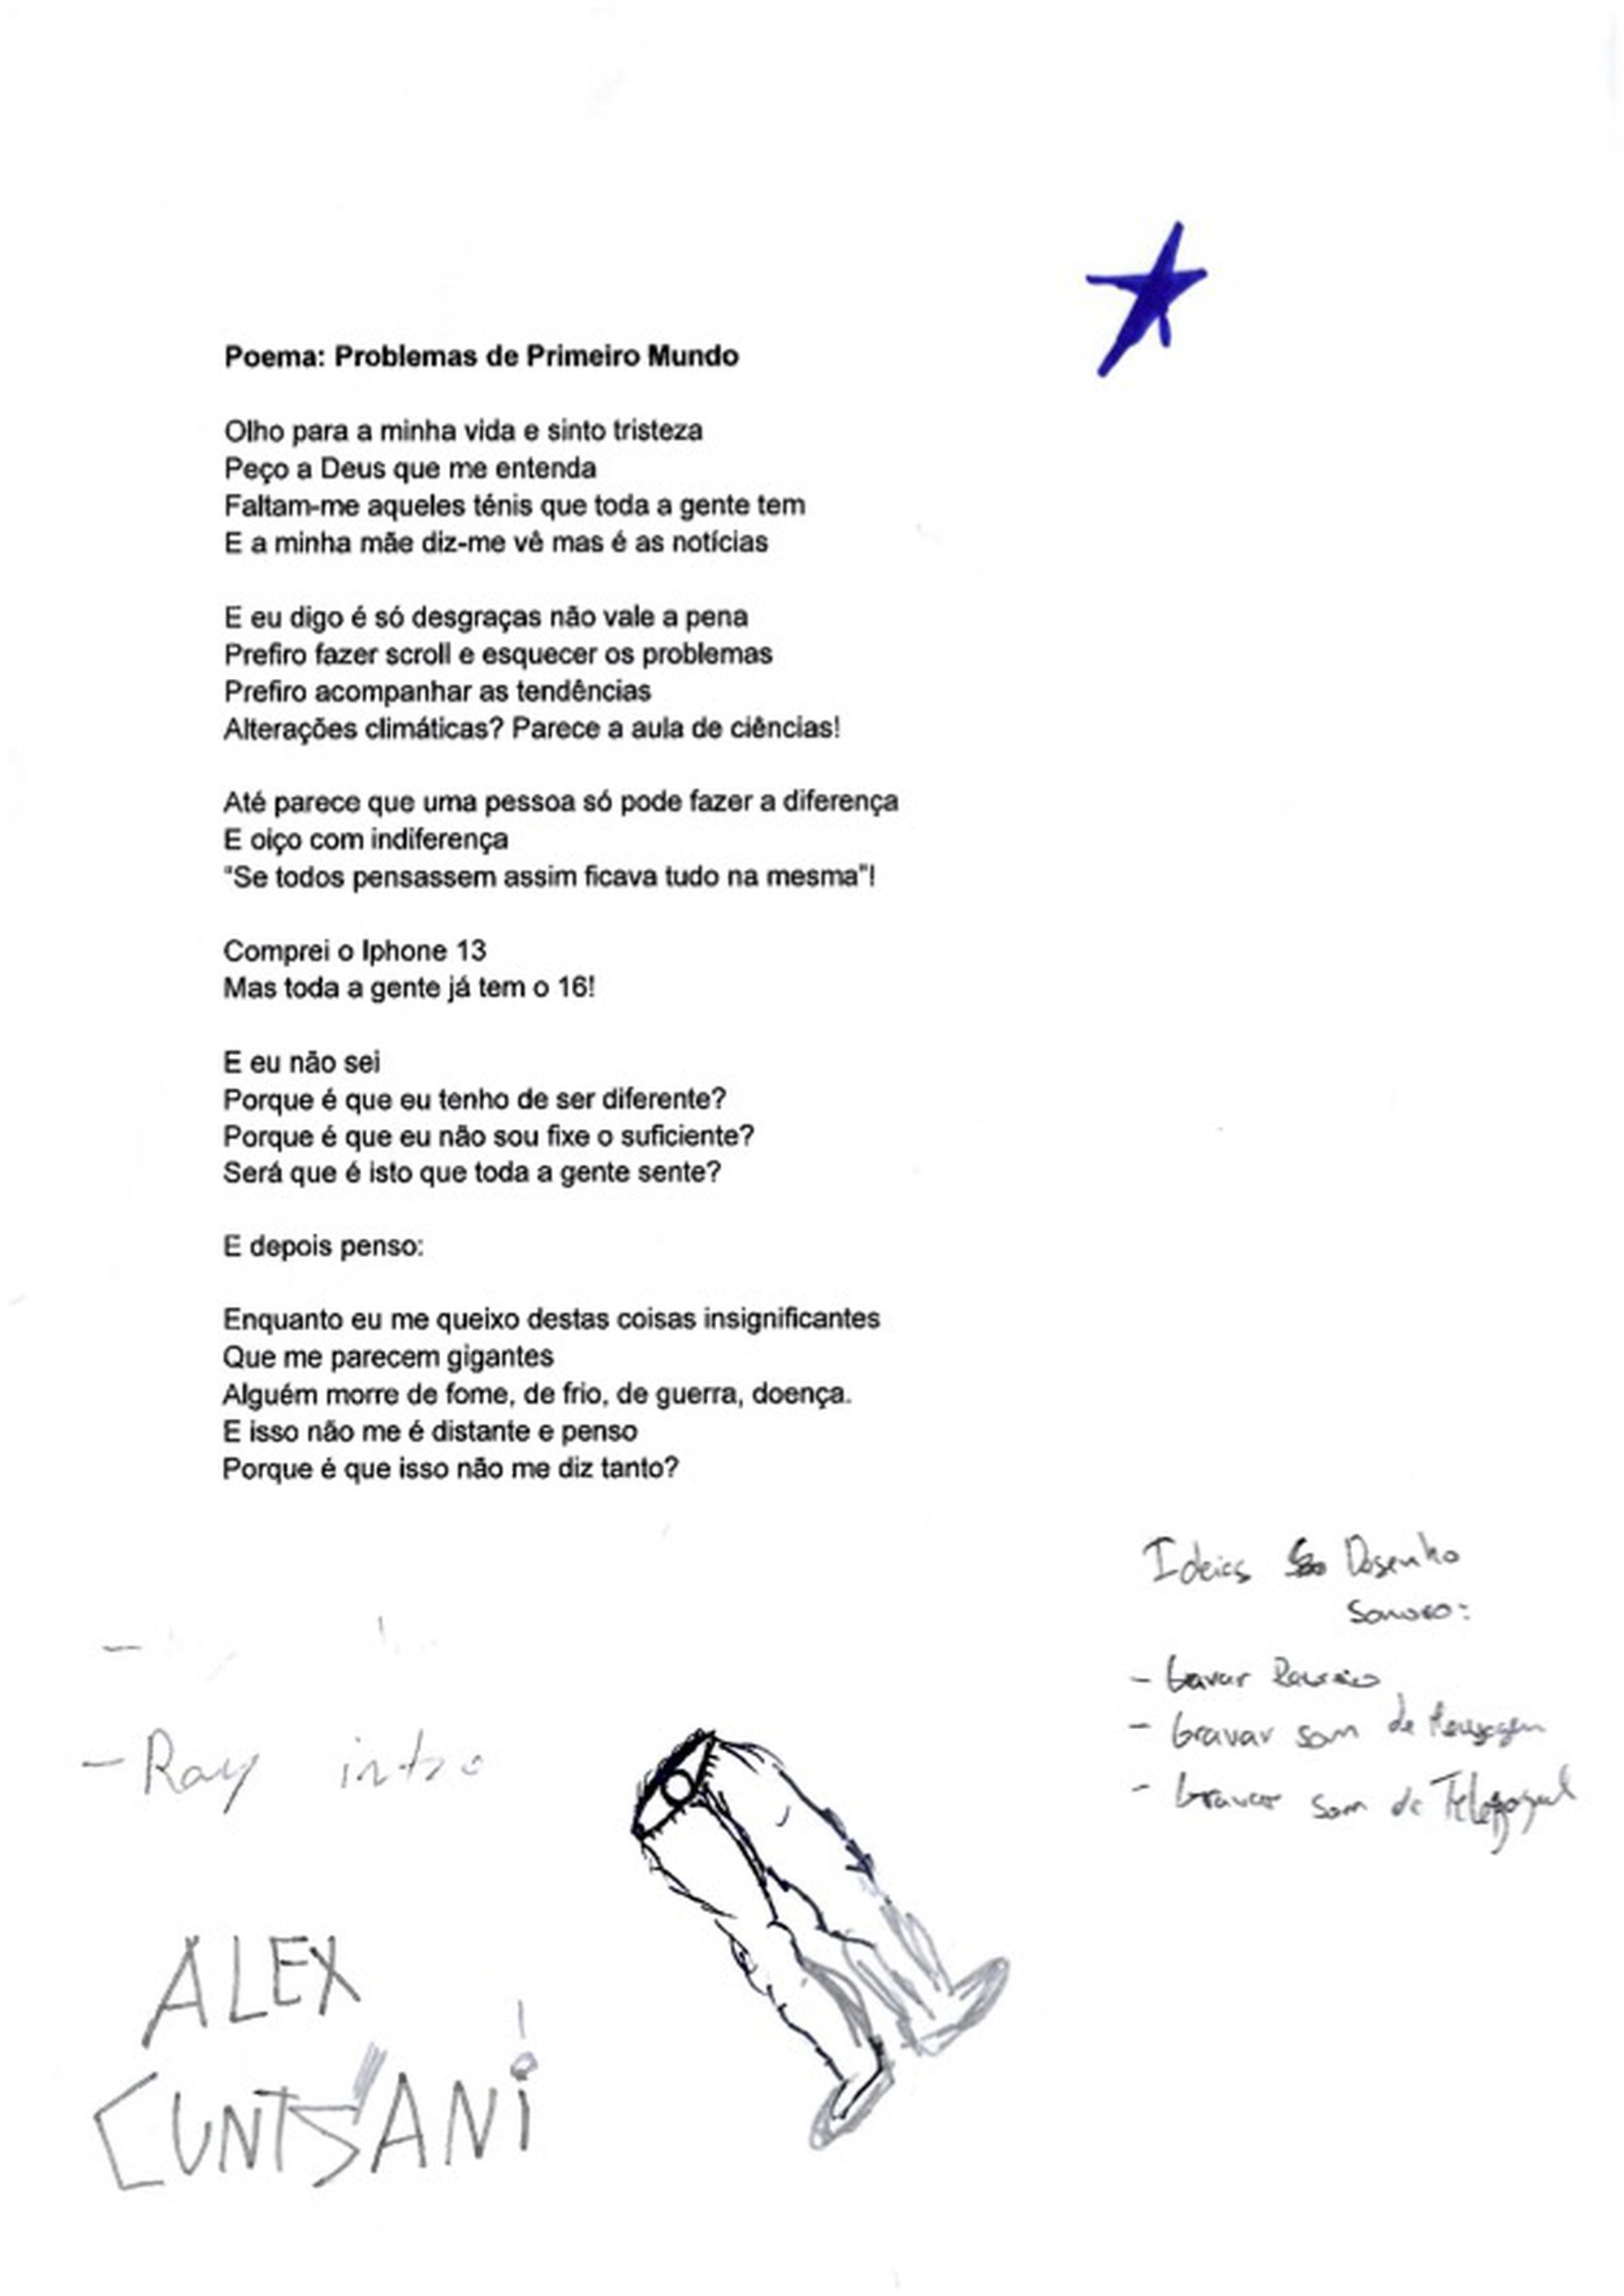 Poema: Problemas de Primeiro Mundo
Olho para a minha vida e sinto tristeza
Peço a Deus que me entenda
Faltam-me aqueles ténis que toda a gente tem
E a minha mãe diz-me vê mas é as notícias
E eu digo é só desgraças não vale a pena
Prefiro fazer scroll e esquecer os problemas
Prefiro acompanhar as tendências
Alterações climáticas? Parece a aula de ciências!
Até parece que uma pessoa só pode fazer a diferença
E oiço com indiferença
"Se todos pensassem assim ficava tudo na mesma"!
Comprei o Iphone 13
Mas toda a gente já tem o 16!
E eu não sei
Porque é que eu tenho de ser diferente?
Porque é que eu não sou fixe o suficiente?
Será que é isto que toda a gente sente?
E depois penso:
Enquanto eu me queixo destas coisas insignificantes
Que me parecem gigantes
Alguém morre de fome, de frio, de guerra, doença.
E isso não me é distante e penso
Porque é que isso não me diz tanto?
Ideias Desenho
Sonoro:
- Gravar
- Gravar som de
- Gravar som de
- Ray intro
ALEX
CUNTSANi